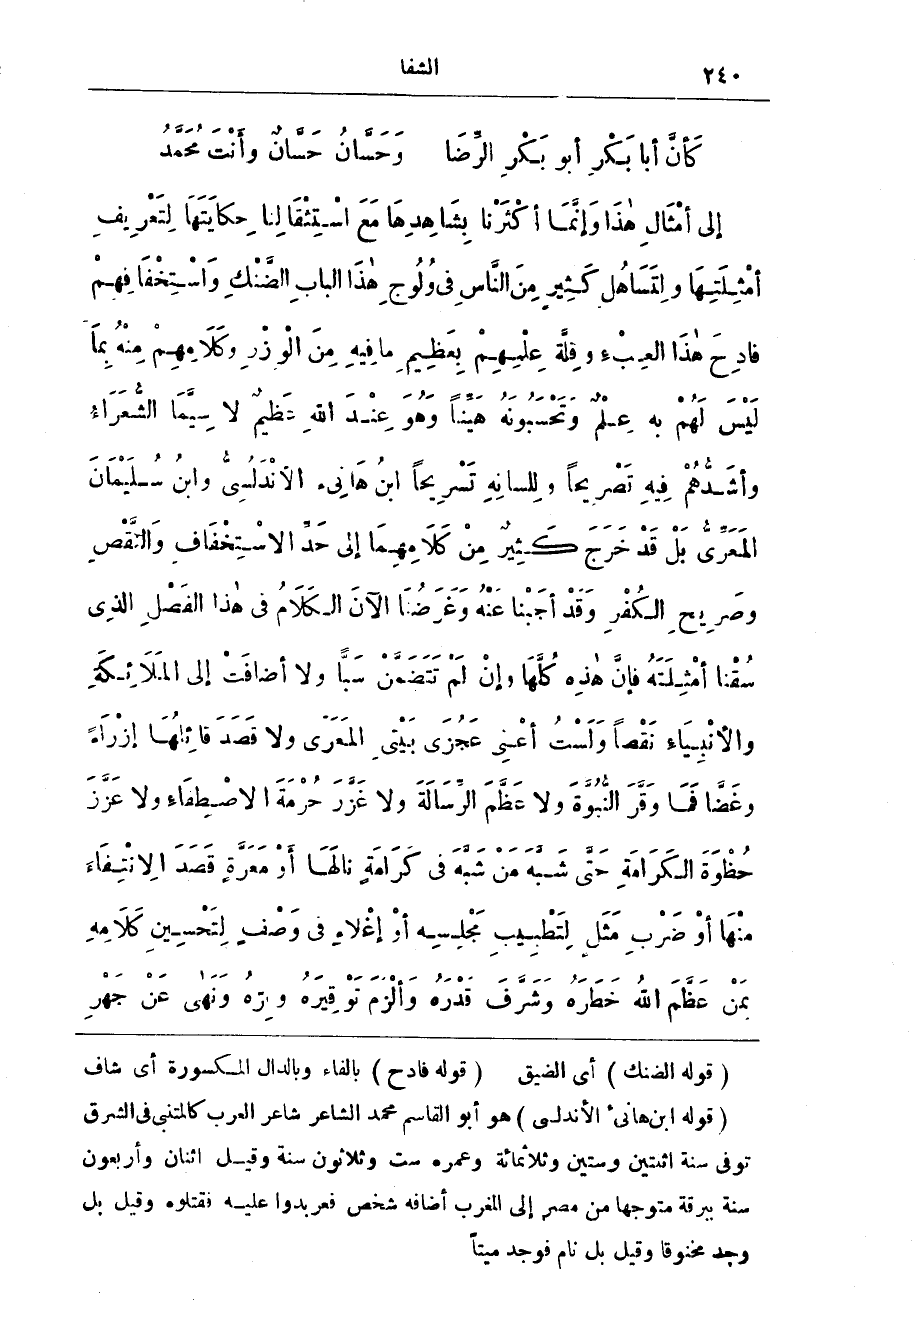 ٢٤٠
الشفا
كَأَنَّ أبا بَكْرٍ أبو بَكْرِ الرِّضَا وَحَسَّانُ حَسَّانٌ وأَنْتَ مُحَمَّدُ
إلى أَمْثَالِ هٰذَا وَإِنَّمَا أكْثَرْنا بِشَاهِدِهَا مَعَ اسْتِثْقَالِنا حِكايَتَهَا لِتَعْرِيفِ
أمْثِلَتِهَا ولِتَسَاهُلِ كَثِيرٍ مِنَ النَّاسِ فى وُلُوجِ هٰذَا البابِ الضَّنْكِ وَاسْتِخْفَافِهِمْ
فادِحَ هٰذَا العِبْءِ وقِلَّةِ عِلْمِهِمْ بِعَظِيمِ مافِيهِ مِنَ الْوِزْرِ وكَلَامِهِمْ مِنْهُ بِمَا
لَيْسَ لَهُمْ بِهِ عِلْمٌ وَتَحْسَبُونَهُ هَيِّناً وَهُوَ عِنْدَ اللهِ عَظِيمٌ لا سِيَّمَا الشُّعَرَاءُ
وأشَدُّهُمْ فِيهِ تَصْرِيحاً ولِلسانِهِ تَسْرِيحاً ابنُ هَانِىء الأَنْدَلُسِىُّ وابنُ سُلَيْمَانَ
المَعَرِّىُّ بَلْ قَدْ خَرَجَ كَثِيرٌ مِنْ كَلَامِهِمَا إلى حَدِّ الاسْتِخْفَافِ والنَّقْصِ
وصَرِيحِ الكُفْرِ وَقَدْ أجَبْنا عَنْهُ وغَرَضُنَا الآنَ الكَلَامُ فى هٰذا الفَصْلِ الذى
سُقْنا أمْثِلَتَهُ فإنَّ هٰذِهِ كُلَّهَا وإِنْ لَمْ تَتَضَمَّنْ سَبًّا ولا أضافَتْ إلى المَلَائِكَةِ
والأَنْبِيَاءِ نَقْصاً وَلَسْتُ أَعْنِى عَجُزَىْ بَيْتَىِ المَعَرِّى ولا قَصَدَ قائِلُهَا إزْرَاءً
وغَضًّا فَمَا وَقَّرَ النُّبُوَّةَ ولا عَظَّمَ الرِّسَالَةَ ولا عَزَّرَ حُرْمَةَ الاصْطِفَاءِ ولا عَزَّزَ
حُظْوَةَ الكَرَامَةِ حَتَّى شَبَّهَ مَنْ شَبَّهَ فى كَرَامَةٍ نالَهَا أوْ مَعَرَّةٍ قَصَدَ الانْتِفَاءَ
مِنْهَا أوْ ضَرْبِ مَثَلٍ لِتَطْيِيبِ مَجْلِسِهِ أوْ إغْلَاءٍ فى وَصْفٍ لِتَحْسِينِ كَلَامِهِ
بِمَنْ عَظَّمَ اللهُ خَطَرَهُ وَشَرَّفَ قَدْرَهُ وألْزَمَ تَوْقِيرَهُ وبِرَّهُ ونَهَى عَنْ جَهْرِ
( قوله الضنك ) أى الضيق ( قوله فادح ) بالفاء وبالدال المكسورة أى شاف
( قوله ابن هانىء الأندلسى ) هو أبو القاسم محمد الشاعر شاعر العرب كالمتنبى فى الشرق
توفى سنة اثنتين وستين وثلاثمائة وعمره ست وثلاثون سنة وقيل اثنان وأربعون
سنة ببرقة متوجها من مصر إلى المغرب أضافه شخص فعربدوا عليه فقتلوه وقيل بل
وجد مخنوقا وقيل بل نام فوجد ميتاً